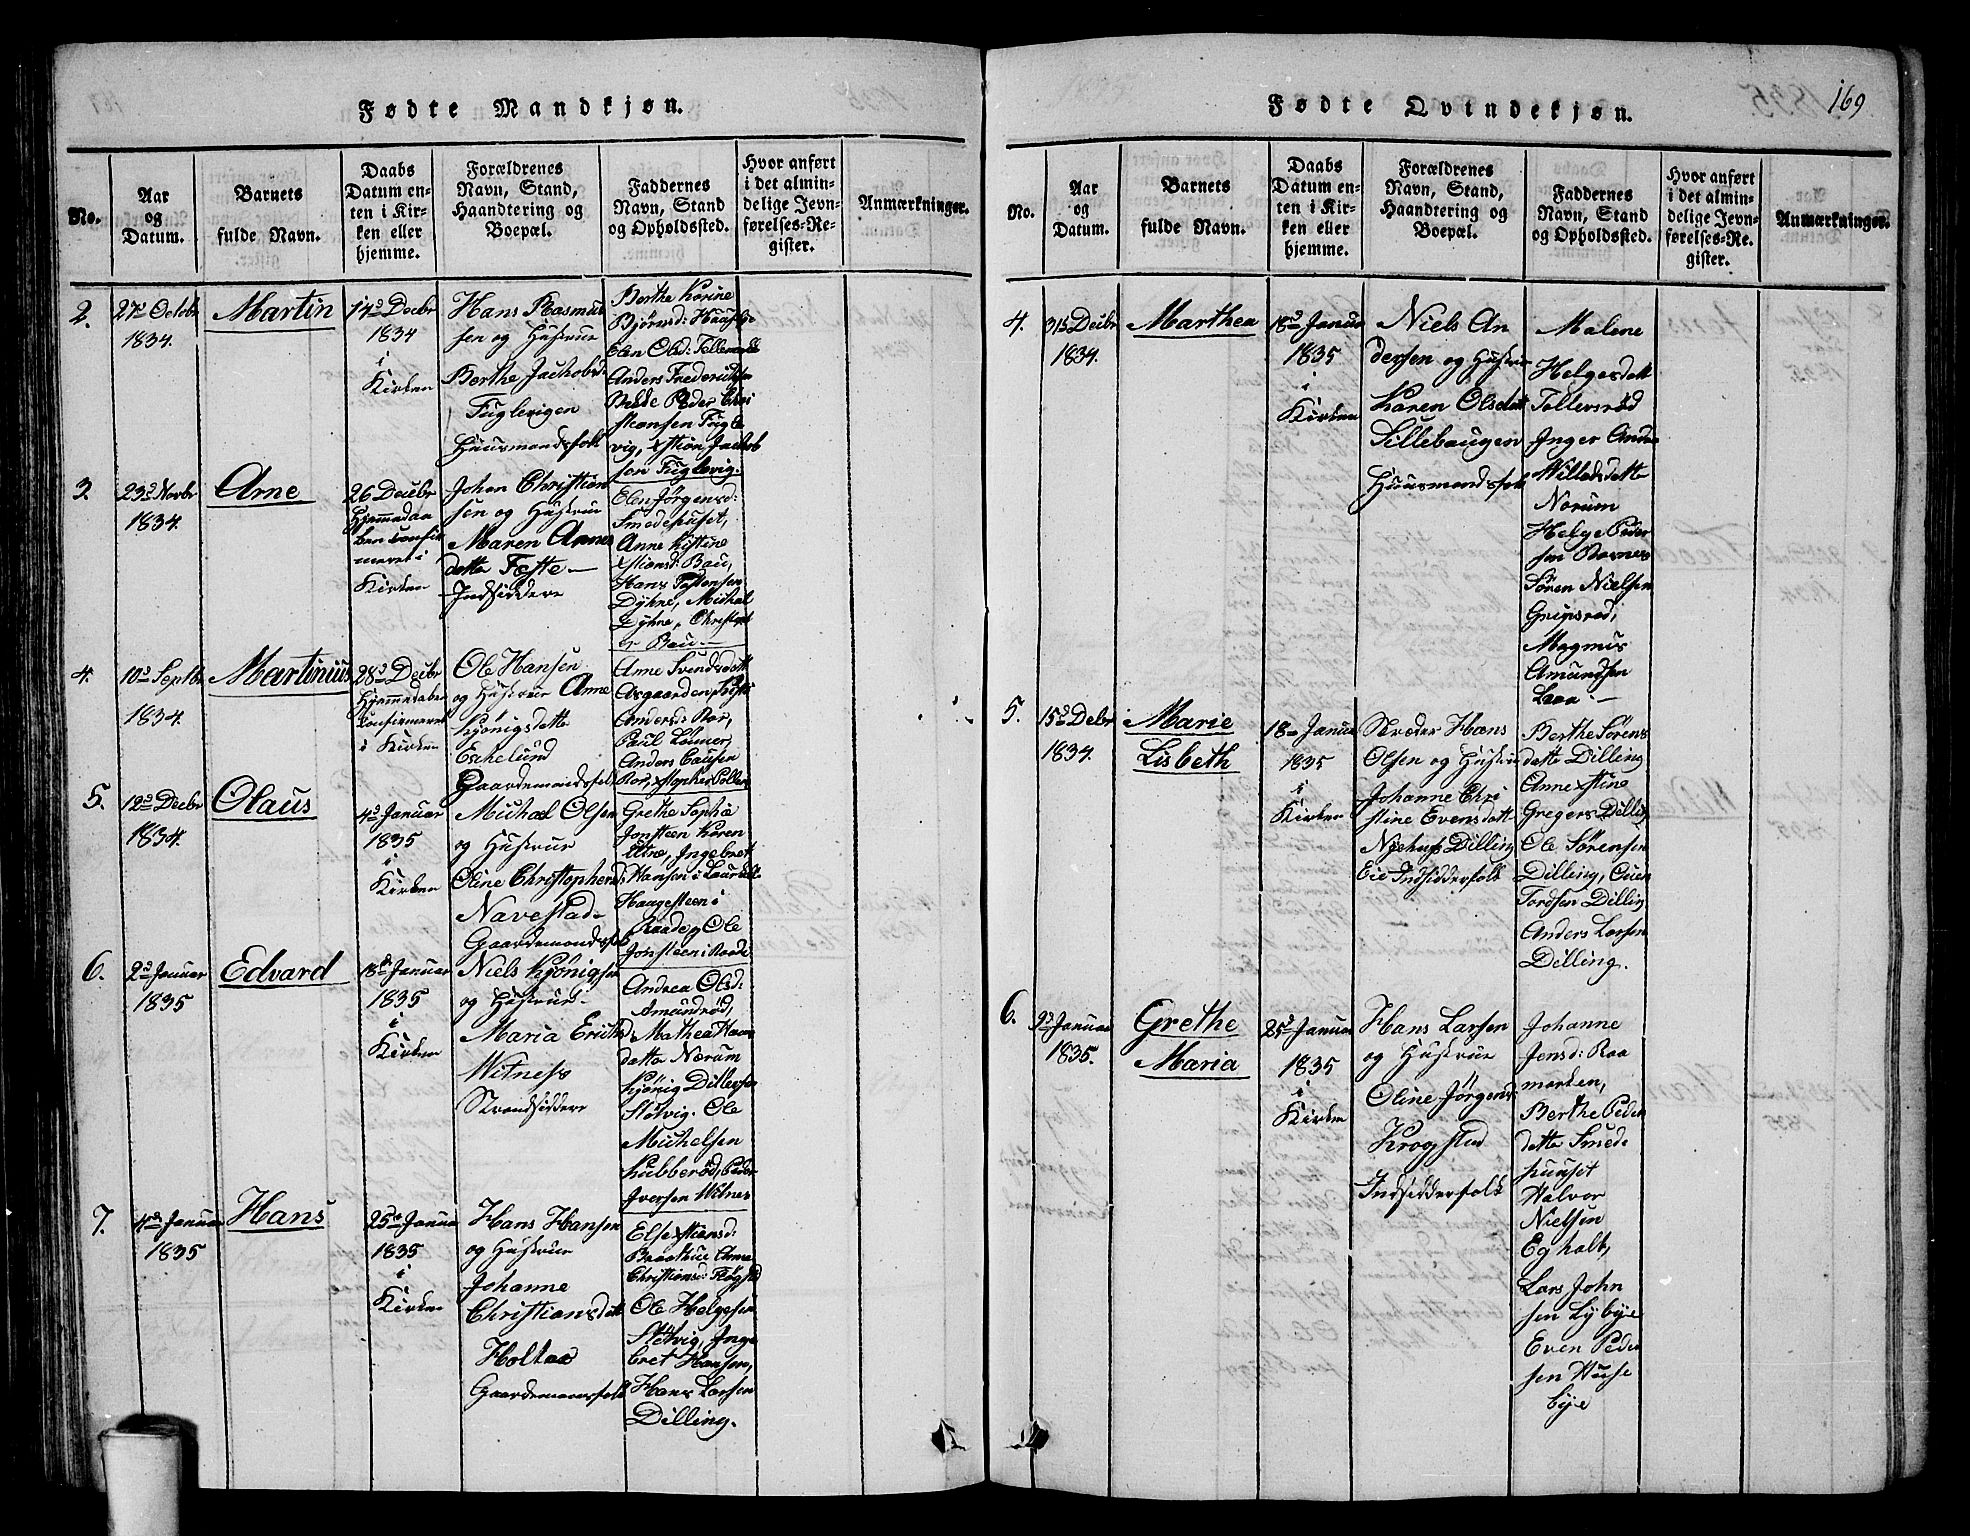 Fødte Mandkjøn.
No.
Aar
og
Datum.
Barnets
fulde Navn.
Daabs
Datum en-
ten i Kir-
ken eller
hjemme.
Forældrenes
Navn, Stand,
Haandtering og
Boepæl.
Faddernes
Navn, Stand
og Opholdssted.
Hvor anført
i det almin-
delige Jevn-
førelses-Re-
gister.
Anmærkninger.
2.
27de Octobr
1834.
Martin
14de Decbr
1834
i
Kirken
Hans Rasmus
sen og Hustrue
Berthe Jachobsd:
Fuglevigen
Huusmandsfolk
Berthe Karine
Bjørnsd: Hauge
Elen Olsd:
Anders Frederichsen
Peder Chri
stiansen Fugle
vig, Xstian Jachob
sen Fuglevig.
3.
23de Novbr
1834.
Arne
26 Decbr
Hjemmedaa
ben confir
meret i
Kirken
Johan Christian
sen og Hustrue
Maren Arnes
datter Fæste
Indsiddere
Elen Jørgensd:
Smedehuset,
Anne Kistine
Xstiansd: Bau,
Hans Torstensen
Dyhne, Michal
Dyhne, Christoph
Bau
4.
10de Septbr
1834.
Martinius
28de Decbr
Hjemmedaben
confirmeret
i Kirken
Ole Hansen
og Hustrue Anne
Kjønigsdatte
Eschelund
Gaardemandsfolk
Anne Svendsdatt
Aasgaarden,
Andersd: Ror,
Paul Løkner,
Anders Clausen
Ror, Xstopher Pollen
5.
12de Decbr
1834.
Olaus
4de Januar
1835
i
Kirken
Michael Olsen
og Hustrue
Oline Christophersd:
Navestad
Gaardemandsfolk
Grethe Sophie
Jonsteen Karen
Eltne, Ingebret
Hansen i
Haugesteen i
Raade, Ole
Jonsteen i Raade
6.
2de Januar
1835
Edvard
18de Januar
1835
i
Kirken
Niels Kjønigsen
og Hustrue
Maria Erichsd:
Witness
Strandsiddere
Andrea Olsd:
Amundrød,
Mathea Hans
datte Norum
Kjønig Ditlevsen
Sletvig. Ole
Michelsen
Kubberød, Peder
Iversen Witnes
7.
4de Januar
1835
Hans
25de Januar
1835
i
Kirken
Hans Hansen
og Hustrue
Johanne
Christiansdatt
Holtaa
Gaardemansfolk
Else Xstiansd:
Anne
Christiansd:
Ole Helgesen
Sletvig, Inge
bret Hansen,
Hans Larsen
Dilling.
Fødte Qvindekjøn.
169
No.
Aar
og
Datum.
Barnets
fulde Navn.
Daabs
Datum en-
ten i Kir-
ken eller
hjemme.
Forældrenes
Navn, Stand,
Haandtering og
Boepæl.
Faddernes
Navn, Stand
og Opholdssted.
Hvor anført
i det almin-
delige Jevn-
førelses-Re-
gister.
Anmærkninger.
4.
31te Decbr
1834.
Marthea
18de Januar
1835
i
Kirken
Niels An
dersen og Hustrue
Karen Olsdatt
Sillebaugen
Huusmandsfolk
Malene
Helgesdatt
Tollersrød
Inger Andr
Willadsdatte
Norum
Helge Peder
sen Barnes
Søren Nielsen
Grimsrød,
Magnus
Amundsen
Laaa
5.
15de Decbr
1834.
Marie
Lisbeth
18de Januar
1835
i
Kirken
Skræder Hans
Olsen og Hustrue
Johanne Chri
stine Evensdatt
Nyehus Dilling
Eie Indsidderfolk
Berthe Sørens
datte Dilling
Anne Xstine
Gregers Dilling
Ole Sørensen
Dilling, Even
Torøsen Dilling
Anders Larsen
Dilling.
6.
9de Januar
1835.
Grethe
Maria
25de Januar
1835
i
Kirken
Hans Larsen
og Hustrue
Oline Jørgensd:
Krogstad
Indsidderfolk
Johanne
Jensd: Raa
marken,
Berthe Peders
datte Smede
huuset
Halvor
Nielsen
Egholt,
Lars John
sen Lybye
Even Peder
sen Huse
bye